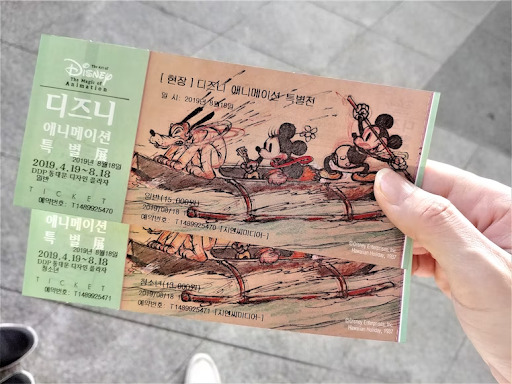 The Art of
DISNEY
The Magic of
Animation
디즈니
애니메이션
특별展
2019년 8월18일
2019. 4. 19~8. 18
DDP 동대문 디자인 플라자
일반
TICKET
예약번호: T1489925470
[ 현장 ] 디즈니 애니메이션 특별전
일 시: 2019년 8월18일
일반(15,000원)
2019/08/18
예약번호: T1489925470 [지엔씨미디어-]
©Disney Enterprises, Inc.
Hawaiian Holiday, 1937
애니메이션
특별展
2019년 8월18일
2019. 4. 19~8. 18
DDP 동대문 디자인 플라자
청소년
TICKET
예약번호: T1489925471
청소년(13,000원)
2019/08/18
예약번호: T1489925471 [지엔씨미디어-]
©Disney Enterprises, Inc.
Hawaiian Holiday, 1937